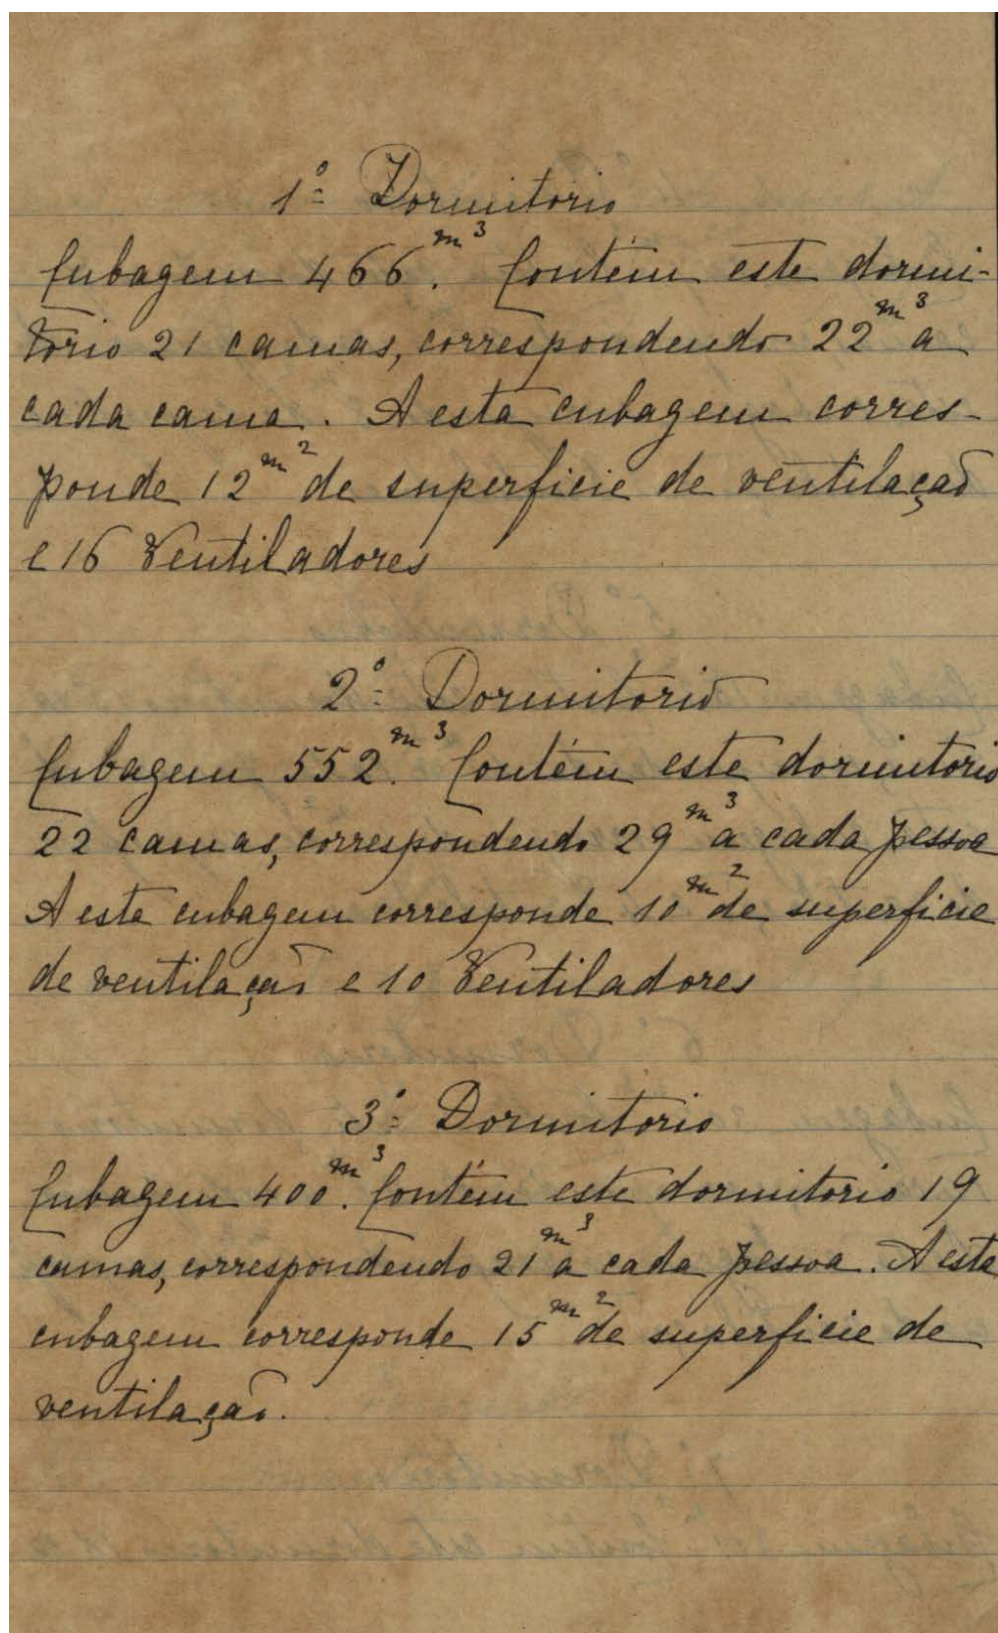 1º Dormitorio
Cubagem 466 m³. Contém este dormi-
torio 21 camas, correspondendo 22 m³ a
cada cama. A esta cubagem corres-
ponde 12 m² de superficie de ventilação
e 16 Ventiladores
2º Dormitorio
Cubagem 552 m³. Contém este dormitorio
22 camas, correspondendo 29 m³ a cada pessoa
A esta cubagem corresponde 10 m² de superficie
de ventilação e 10 Ventiladores
3º Dormitorio
Cubagem 400 m³. Contém este dormitorio 19
camas, correspondendo 21 m³ a cada pessoa. A esta
cubagem corresponde 15 m² de superficie de
ventilação.